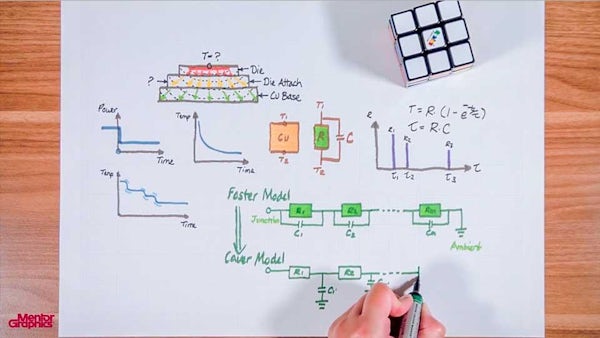 T=?
?
Die
Die Attach
Cu Base
Power
Time
Temp
Time
Temp
Time
T1
Cu
T2
T1
R
C
T2
R
R1
R2
R3
τ1
τ2
τ3
τ
T = R·(1-e^-t/τ)
τ = R·C
Foster Model
Junction
R1
R2
Rn
C1
C2
Cn
Ambient
Cauer Model
R1
R2
C1
C
Mentor
Graphics